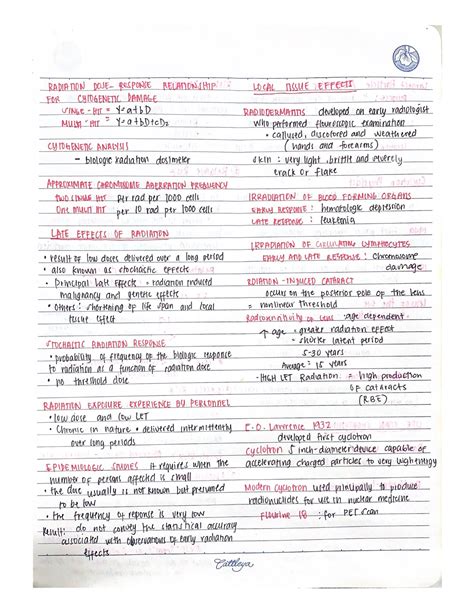 RADIATION DOSE- RESPONSE RELATIONSHIP
FOR CYTOGENETIC DAMAGE
SINGLE- HIT = Y=a+bD
MULTI-HIT = Y=a+bD+cD₂
CYTOGENETIC ANALYSIS
- biologic radiation dosimeter
APPROXIMATE CHROMOSOME ABERRATION FREQUENCY
TWO SINGLE HIT per rad per 1000 cells
One MULTI HIT per 10 rad per 1000 cells
LATE EFFECTS OF RADIATION
• result of low doses delivered over a long period
• also known as stochastic effects
• Principal late effects = radiation induced
malignancy and genetic effects
• Others: shortening of life span and local
tissue effect
STOCHASTIC RADIATION RESPONSE
• probability of frequency of the biologic response
to radiation as a function of radiation dose
• no threshold dose
RADIATION EXPOSURE EXPERIENCE BY PERSONNEL
• low dose and low LET
• Chronic in nature • delivered intermittently
over long periods
EPIDEMIOLOGIC STUDIES It requires when the
number of persons affected is small
• the dose usually is not known but presumed
to be low
• the frequency of reponse is very low
Result: do not convey the statistical accuracy
associated with observations of early radiation
effects
LOCAL TISSUE EFFECTS
RADIODERMATITIS developed on early radiologist
who performed fluoroscopic examination
• callused, discolored and weathered
(hands and forearms)
skin: very light, brittle and severely
track or flake
IRRADIATION OF BLOOD FORMING ORGANS
EARLY RESPONSE: hematologic depression
LATE RESPONSE: leukemia
IRRADIATION OF CIRCULATING LYMPHOCYTES
EARLY AND LATE RESPONSE: Chromosome
damage
RDIATION -INDUCED CATARACT
occurs on the posterior pole of the lens
= nonlinear threshold
Radiosensitivity of lens: age dependent
↑ age = greater radiation effect
- shorter latent period
5-30 years
Average = 15 years
-HIGH LET Radiation = high production
of cataracts
(RBE)
E.O. Lawrence 1932
developed first cyclotron
cyclotron 5 inch-diameter device capable of
accelerating charged particles to very high energy
Modern cyclotron used principally to produce
radionuclides for use in nuclear medicine
Flourine 18 : for PET scan
Cattleya